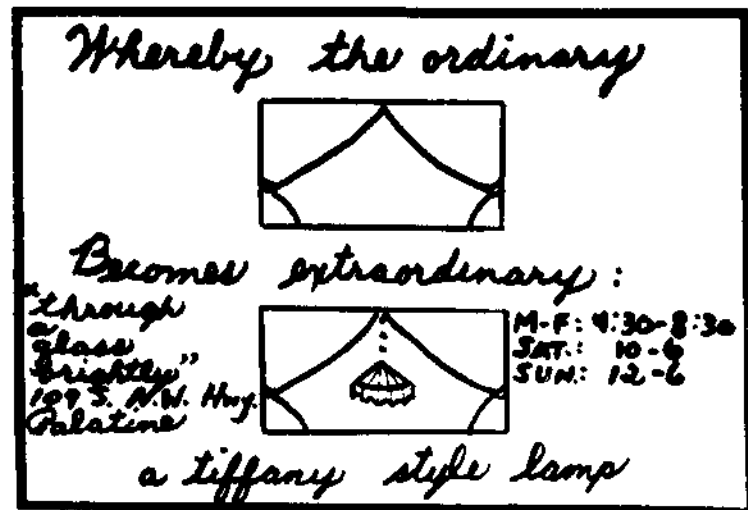 Whereby the ordinary
Becomes extraordinary:
"through
a
glass
brightly"
109 S. N.W. Hwy.
Palatine
M-F: 9:30-8:30
SAT.: 10-6
SUN.: 12-6
a tiffany style lamp